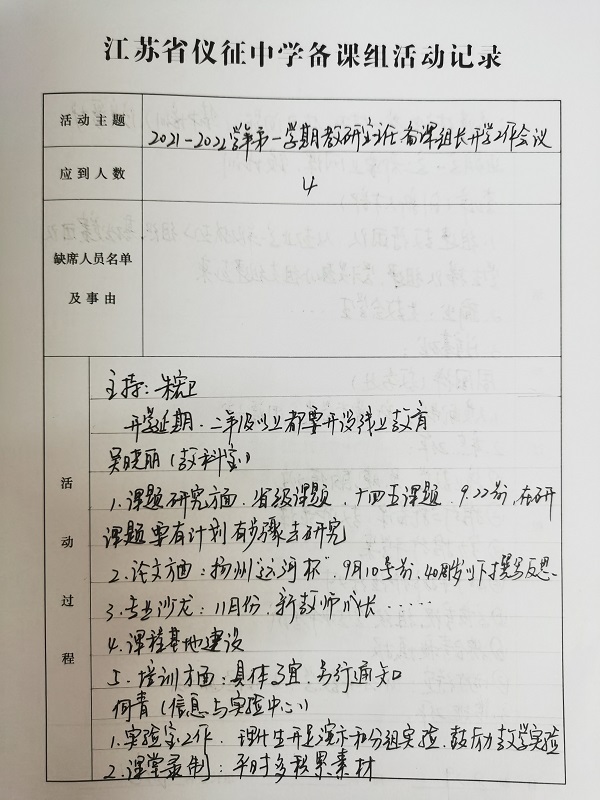 江苏省仪征中学备课组活动记录
活动主题
2021-2022学年第一学期教研室主任、备课组长开学工作会议
应到人数
4
缺席人员名单
及事由
活动过程
主持：朱宏卫
开学延期．二年级以上都要开设线上教育
吴晓丽（教科室）
1.课题研究方面．省级课题．十四五课题．9.22前，在研
课题要有计划有步骤去研究
2.论文方面：扬州"运河杯"．9月10号前．40周岁以下撰写反思．
3.专业沙龙：11月份．新教师成长……
4.课程基地建设
5.培训方面：具体事宜，另行通知
何青（信息与实验中心）
1.实验室工作．理化生开足演示和分组实验．鼓励教学实验
2.课堂录制：平时多积累素材